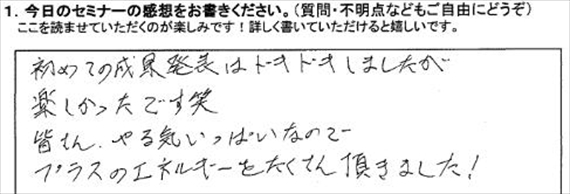 1. 今日のセミナーの感想をお書きください。(質問・不明点などもご自由にどうぞ)
ここを読ませていただくのが楽しみです!詳しく書いていただけると嬉しいです。
初めての成果発表はドキドキしましたが
楽しかったです笑
皆さん、やる気いっぱいなので
プラスのエネルギーをたくさん頂きました!